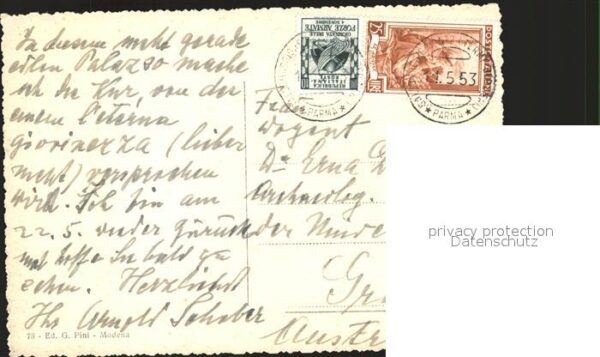 In diesem nicht gerade
edlen Palazzo mache
ich die Kur von der
einem l'eterna
giovinezza (lieber
nicht) versprochen
wird. Ich bin am
22. 5. wieder zurück
und hoffe Sie bald zu
sehen. Herzlichst
Ihr Arnold
78 - Ed. G. Pini - Modena
REPUBBLICA
ITALIANA
POSTE
GIORNATA DELLE
FORZE ARMATE
4 NOVEMBRE
POSTE ITALIANE
25
PARMA
5.53
PARMA
Frau
Dozent
Dr Erna D
Archaeolog.
der Unive
Gra
Austr
privacy protection
Datenschutz